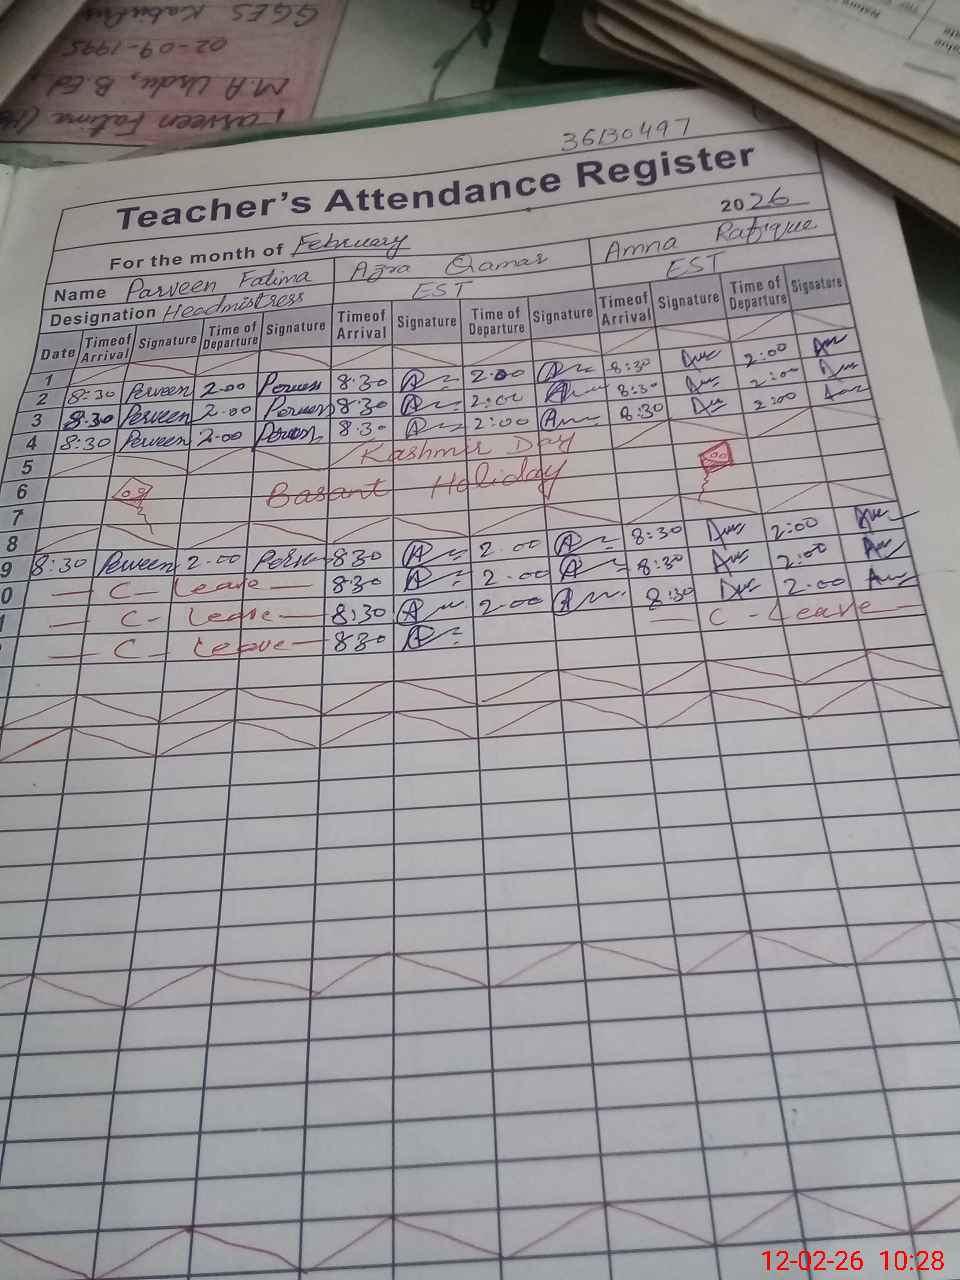 GGES
02-09-1995
M A Urdu, B.Ed
Parveen Fatima
36130497
Teacher's Attendance Register
2026
For the month of February
Name Parveen Fatima Azra Qamar Amna Rafique
Designation Headmistress EST EST
Date Time of Arrival Signature Time of Departure Signature Time of Arrival Signature Time of Departure Signature Time of Arrival Signature Time of Departure Signature
1
2 8:30 Perveen 2.00 Perveen 8.30 2.00 8:30 2:00
3 8.30 Perveen 2.00 Perveen 8.30 2:00 8:30 2:00
4 8:30 Perveen 2.00 Perveen 8.30 2:00 8:30 2:00
5 Kashmir Day
6 Basant Holiday
7
8
9 8:30 Perveen 2.00 830 2.00 8:30 2:00
0 C- Leave 8:30 2.00 8:30 2:00
C- Leave 8:30 2.00 8:30 2.00
C- Leave 830 C-Leave
12-02-26 10:28